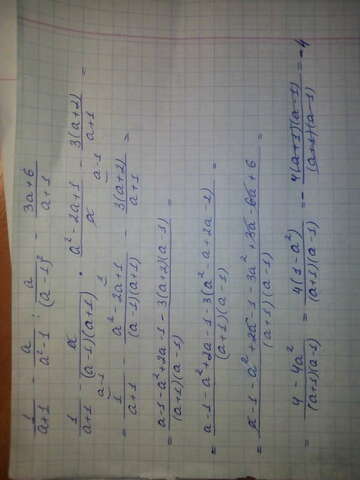 1/(a+1) - a/(a²-1) : a/(a-1)² - (3a+6)/(a+1)
1/(a+1) - a/((a-1)(a+1)) · (a²-2a+1)/a - 3(a+2)/(a+1) =
a-1 1 a-1
= 1/(a+1) - (a²-2a+1)/((a-1)(a+1)) - 3(a+2)/(a+1) =
= (a-1-a²+2a-1-3(a+2)(a-1))/((a+1)(a-1)) =
= (a-1-a²+2a-1-3(a²-a+2a-1))/((a+1)(a-1)) =
= (a-1-a²+2a-1-3a²+3a-6a+6)/((a+1)(a-1)) =
= (4-4a²)/((a+1)(a-1)) = 4(1-a²)/((a+1)(a-1)) = - 4(a+1)(a-1)/((a+1)(a-1)) = -4